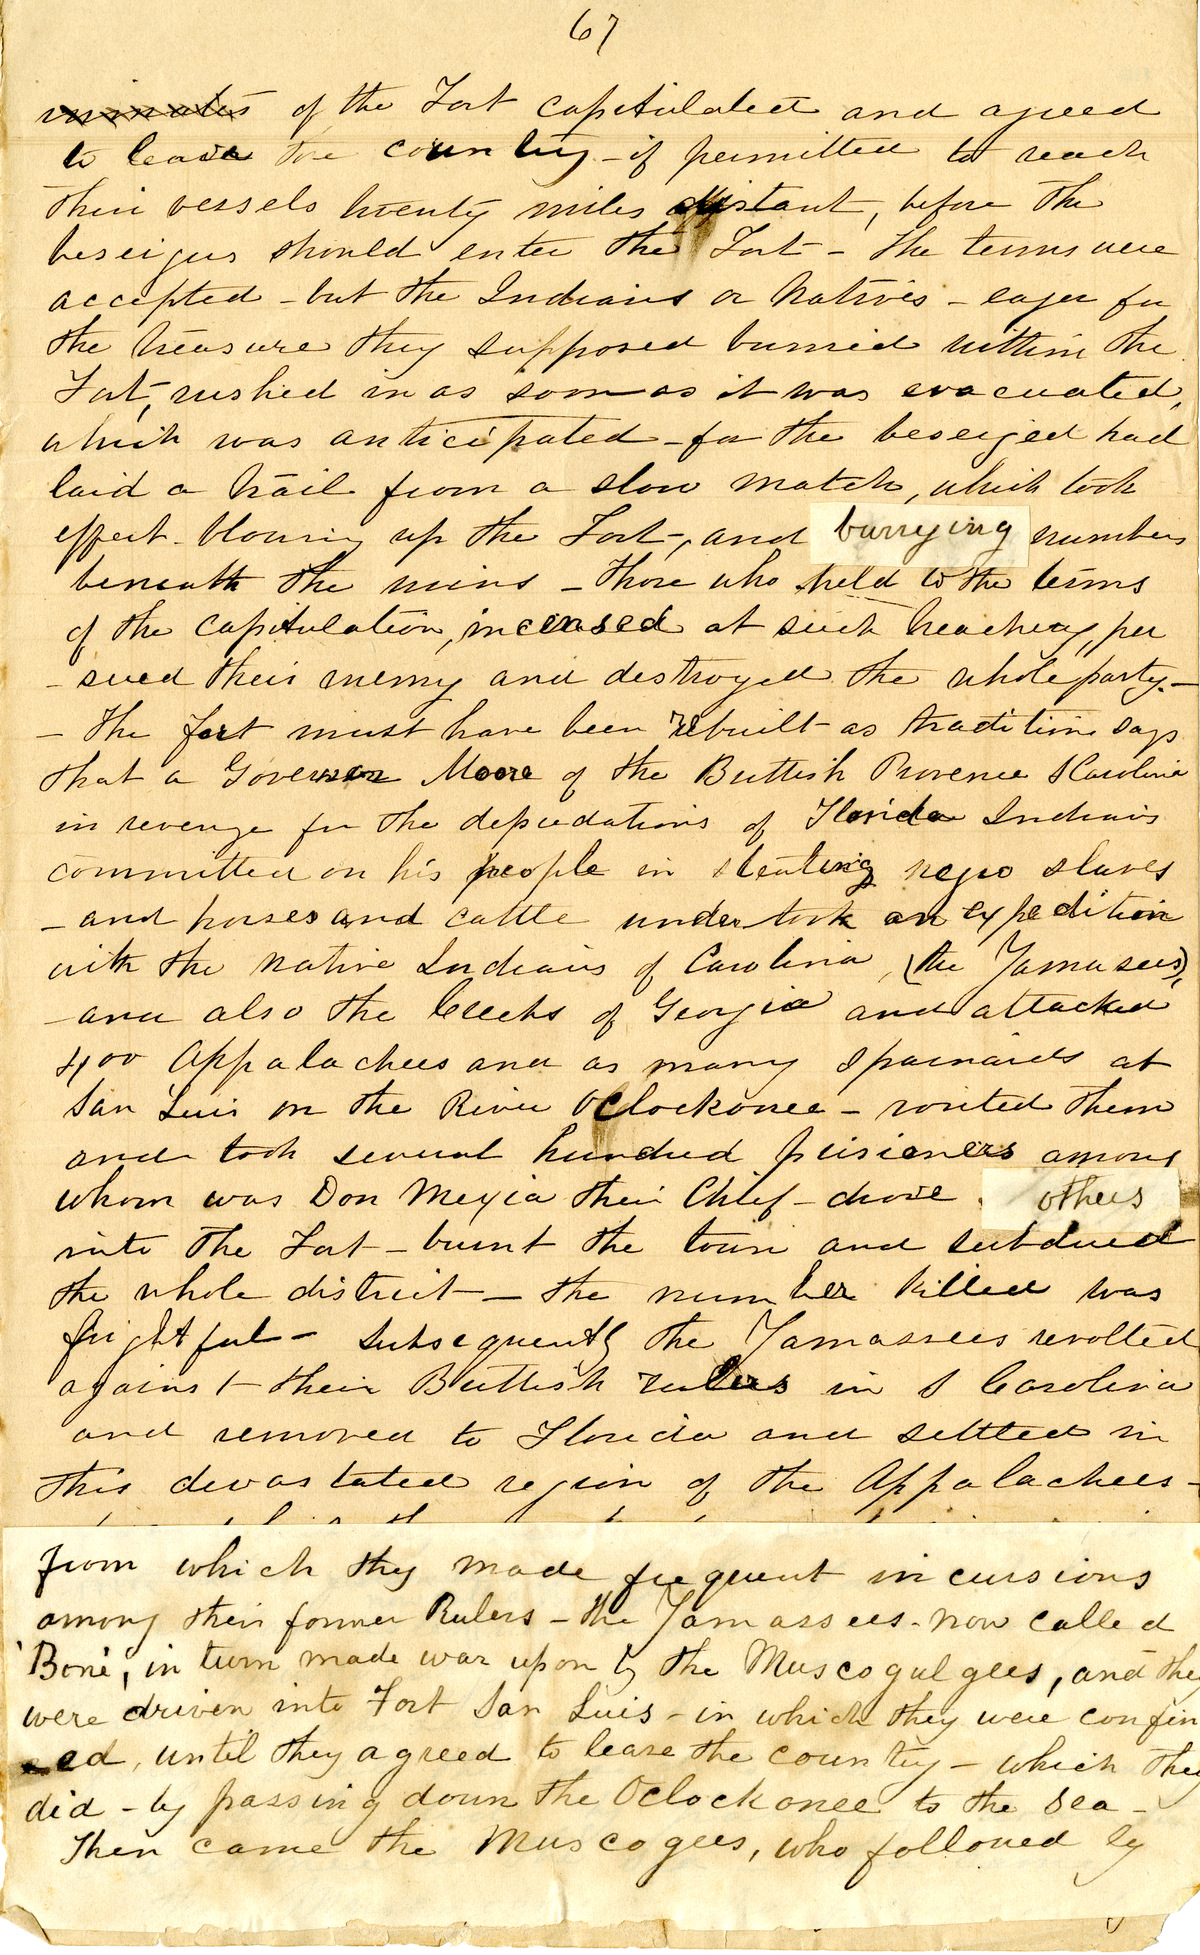 67
inmates of the Fort capitulated and agreed
to leave the country - if permitted to reach
their vessels twenty miles distant, before the
beseigers should enter the Fort - The terms were
accepted - but the Indians or Natives - eager for
the treasure they supposed burried within the
Fort, rushed in as soon as it was evacuated,
which was anticipated - for the beseiged had
laid a trail from a slow match, which took
effect - blowing up the Fort -, and burrying numbers
beneath the ruins - those who held to the terms
of the capitulation, incensed at such treachery, per
- sued their enemy and destroyed the whole party. -
- The fort must have been rebuilt as tradition says
that a Governor Moore of the Brittish Provence S Carolina
in revenge for the depredations of Florida Indians
committed on his people in stealing negro slaves
- and horses and cattle undertook an expedition
with the native Indians of Carolina, (the Yamasees),
- and also the Creeks of Georgia and attacked
400 Appalachees and as many Spainards at
San Luis on the River Oclockonee - routed them
and took several hundred prisioners among
whom was Don Mexia their Chief - drove others
into the Fort - burnt the town and subdued
the whole district - the number killed was
frightful - Subsequently the Yamassees revolted
against their Brittish rulers in S Carolina
and removed to Florida and settled in
this devastated region of the Appalachees -
from which they made frequent incursions
among their former Rulers - the Yamassees - now called
'Bone', in turn made war upon by the Muscogulgees, and they
were driven into Fort San Luis - in which they were confin
- ed, until they agreed to leave the country - which they
did - by passing down the Oclockonee to the sea -
Then came the Muscogees, who followed by